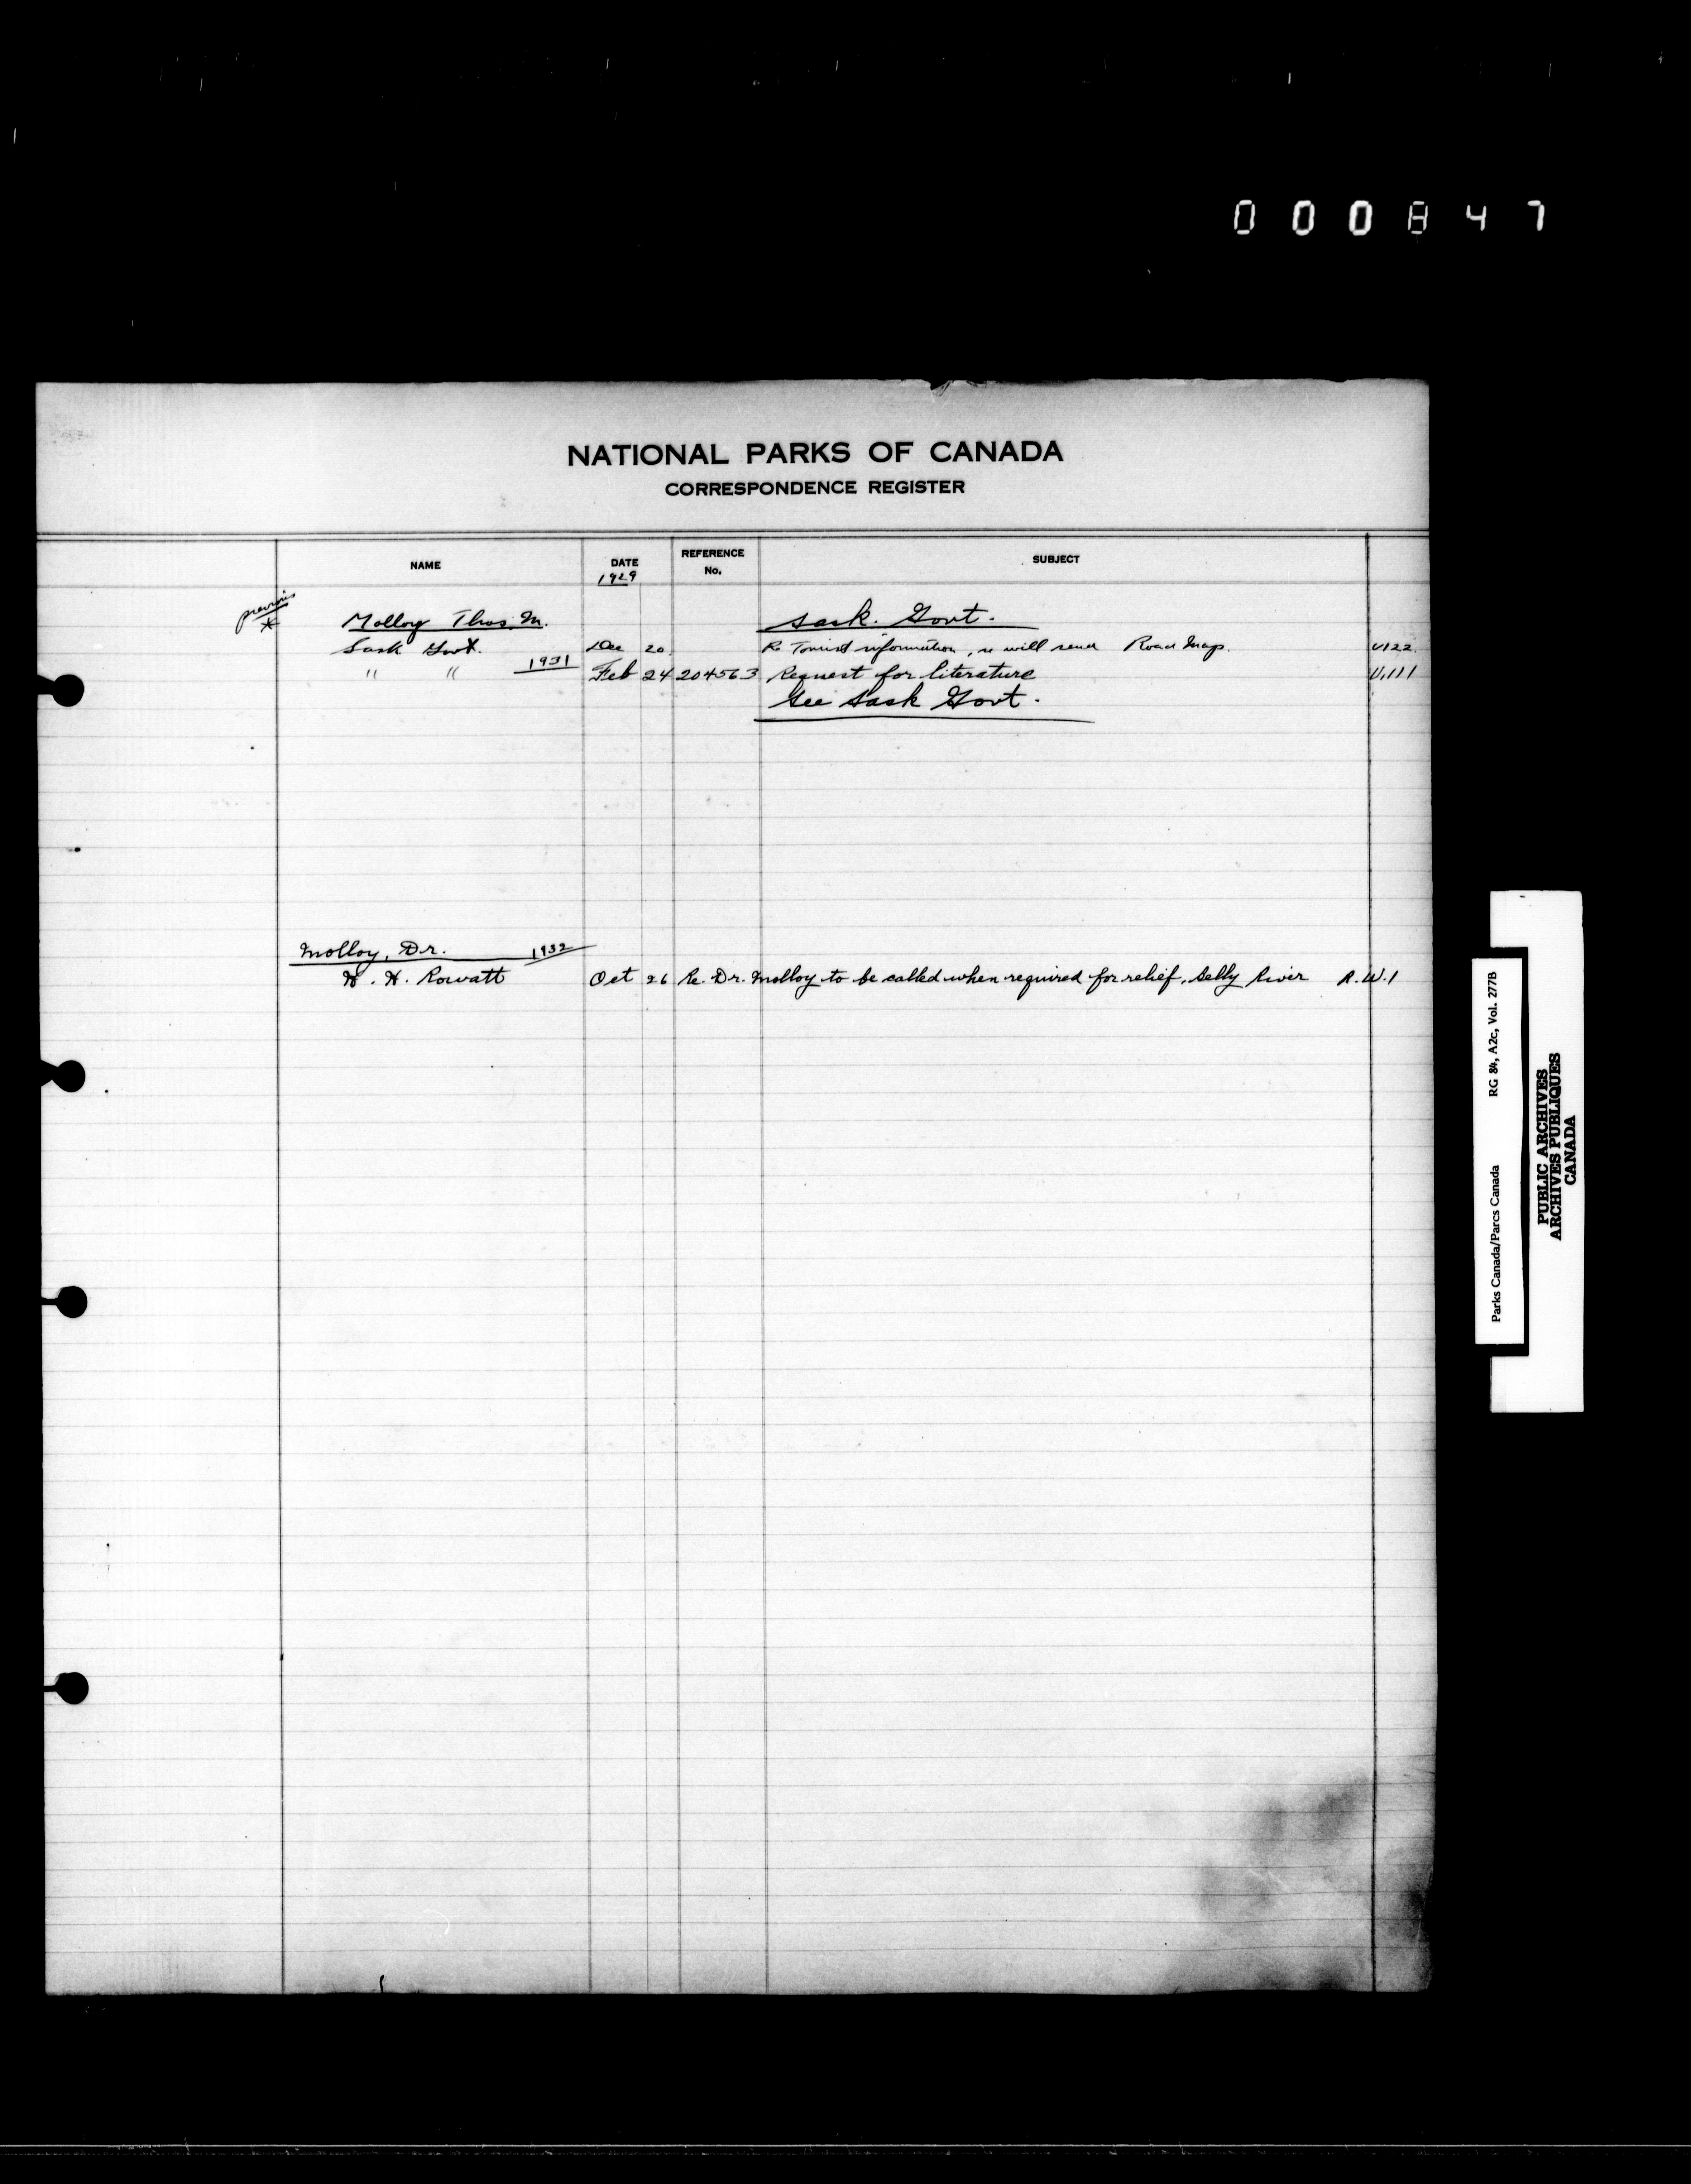 000847
NATIONAL PARKS OF CANADA
CORRESPONDENCE REGISTER
NAME DATE REFERENCE No. SUBJECT
1929
previous
* Molloy Thos. M. Sask. Govt.
Sask Govt. Dec 20. Re Tourist information, & will send Road Map. U122
" " 1931 Feb 24 204563 Request for literature U.111
See Sask Govt.
Molloy, Dr. 1932
H. H. Rowatt Oct 26 Re. Dr. Molloy to be called when required for relief, Selby River R.W.1
Parks Canada/Parcs Canada RG 84, A2c, Vol. 277B
PUBLIC ARCHIVES
ARCHIVES PUBLIQUES
CANADA